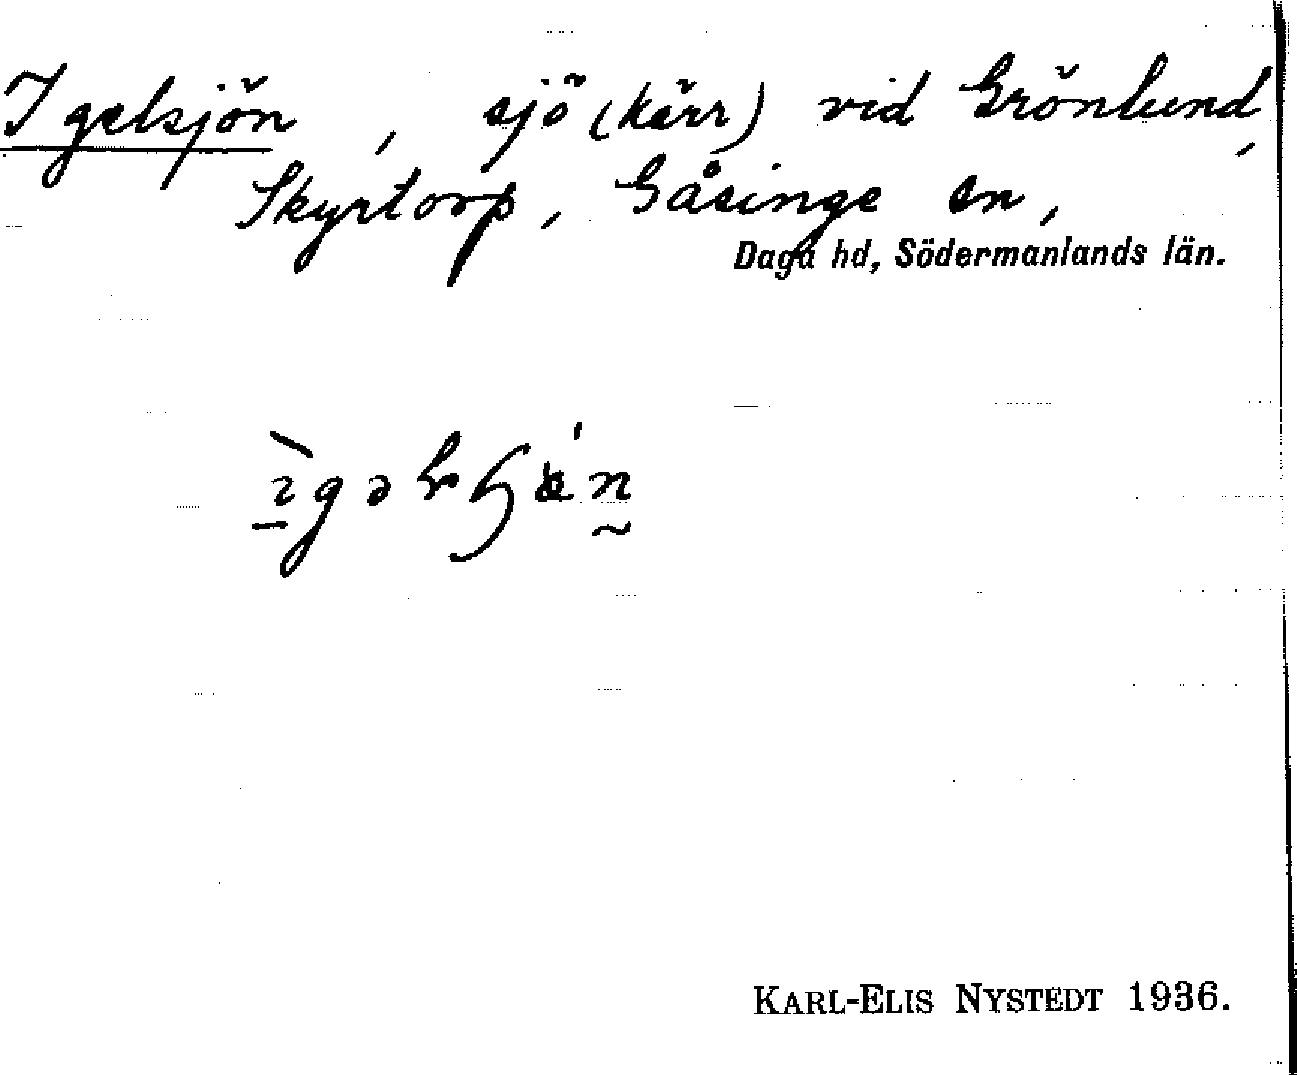 Igelsjön, sjö (kärr) vid Grönlund,
Skyrtorp, Gåsinge sn,
Daga hd, Södermanlands län.
KARL-ELIS NYSTEDT 1936.